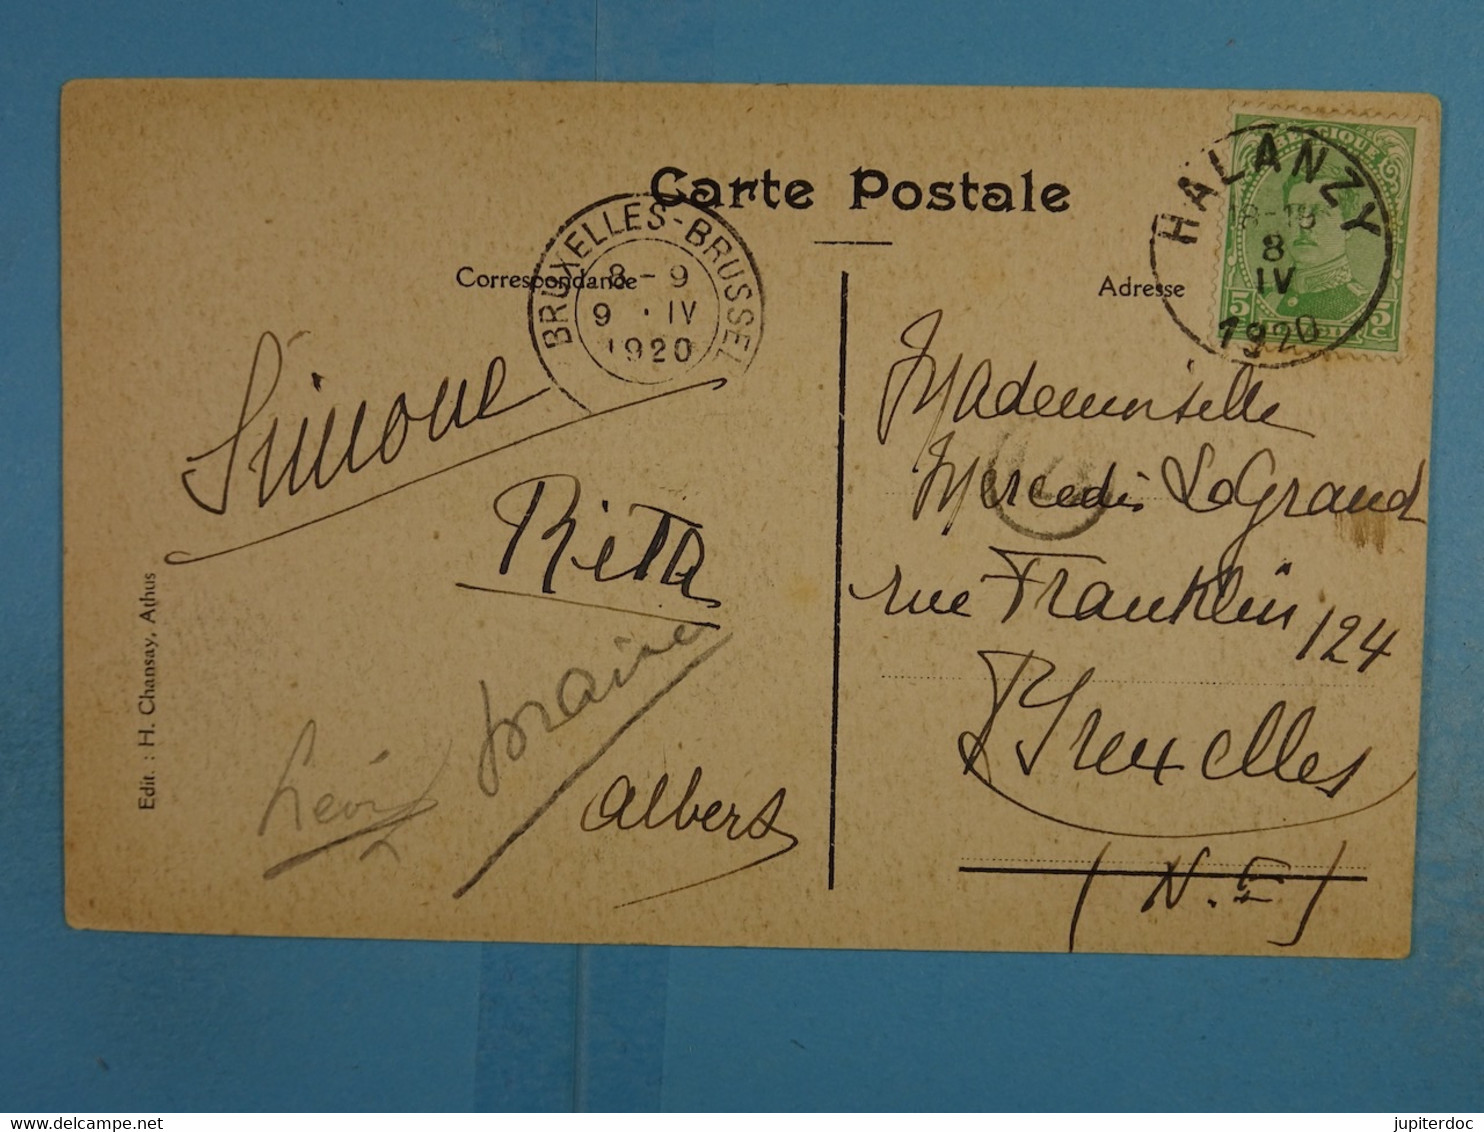 Carte Postale
Correspondance
Adresse
BRUXELLES-BRUSSEL
8-9
9 · IV
1920
HALANZY
18-19
8
IV
1920
BELGIQUE
5 5
Simone
Rita
Léon
Albert
Mademoiselle
Mercedès LeGrand
rue Franklin 124
Bruxelles
(N.E)
Edit. : H. Chansay, Athus
jupiterdoc